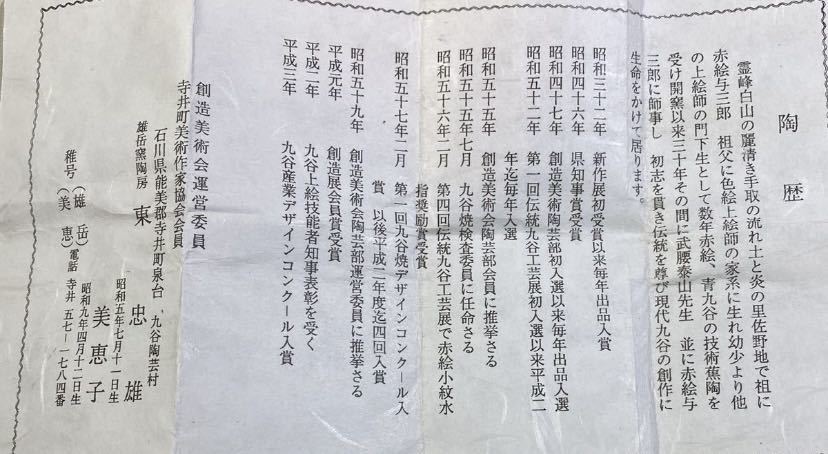 陶歴
霊峰白山の麗清き手取の流れ土と炎の里佐野地で祖に
赤絵与三郎　祖父に色絵上絵師の家系に生れ幼少より他
の上絵師の門下生として数年赤絵、青九谷の技術蕉陶を
受け開窯以来三十年その間に武腰泰山先生　並に赤絵与
三郎に師事し　初志を貫き伝統を尊び現代九谷の創作に
生命をかけて居ります。
昭和三十二年　新作展初受賞以来毎年出品入賞
昭和四十六年　県知事賞受賞
昭和四十七年　創造美術会陶芸部初入選以来毎年出品入選
昭和五十二年　第一回伝統九谷工芸展初入選以来平成二
年迄毎年入選
昭和五十五年　創造美術会陶芸部会員に推挙さる
昭和五十五年七月　九谷焼検査委員に任命さる
昭和五十六年二月　第四回伝統九谷工芸展で赤絵小紋水
指奨励賞受賞
昭和五十七年二月　第一回九谷焼デザインコンクール入
賞　以後平成二年度迄四回入賞
昭和五十九年　創造美術会陶芸部運営委員に推挙さる
平成元年　創造展会員賞受賞
平成二年　九谷上絵技能者知事表彰を受く
平成三年　九谷産業デザインコンクール入賞
創造美術会運営委員
寺井町美術作家協会会員
石川県能美郡寺井町泉台　九谷陶芸村
雄岳窯陶房　東　忠雄
昭和五年七月十一日生
美恵子
昭和九年四月十二日生
雅号（雄岳）（美恵）電話　寺井　五七―一七八四番